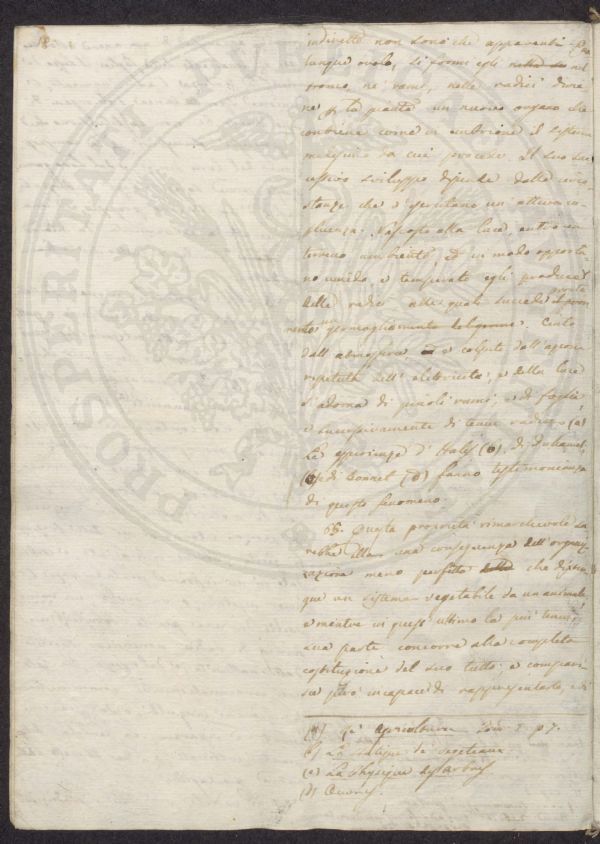 18
indiretto non sono che apparenti
lunque ovolo, si formi egli nel
tronco, ne' rami, nelle radici
ne la pianta un nuovo organo che
contiene come in embrione il sistema
medesimo da cui procede. Il suo suc
cessivo sviluppo dipende dalle circo
stanze che v' esercitano un' attiva in
fluenza. alla luce, entro un
terreno ed in modo opportu
no umido, e temperato egli produce
delle radici alle quali succede
mento germogliamento Cinto
dall' atmosfera, e colpito dall' azione
ripetuta dell' elettricità, e della luce
s' adorna di piccoli rami, e di foglie
e successivamente di tenui radici (a)
Le esperienze d' Hales (b), di Duhamel,
(c) e di Bonnet (d) fanno testimonianza
di questo fenomeno.
65. Questa proprietà rimarchevole sa
rebbe una conseguenza dell' organiz
zazione meno perfetta che distin
gue un sistema vegetabile da un animale
e mentre in quest' ultimo la più tenue
sua parte concorre alla completa
costituzione del suo tutto; e compari
sce però incapace di rappresentarlo, e di
(a) Agricoltura Tom. I. p. 7.
(b) La statique des vegetaux
(c) La Physique des arbres
(d) Oeuvres
PROSPERITATI PUBLICAE